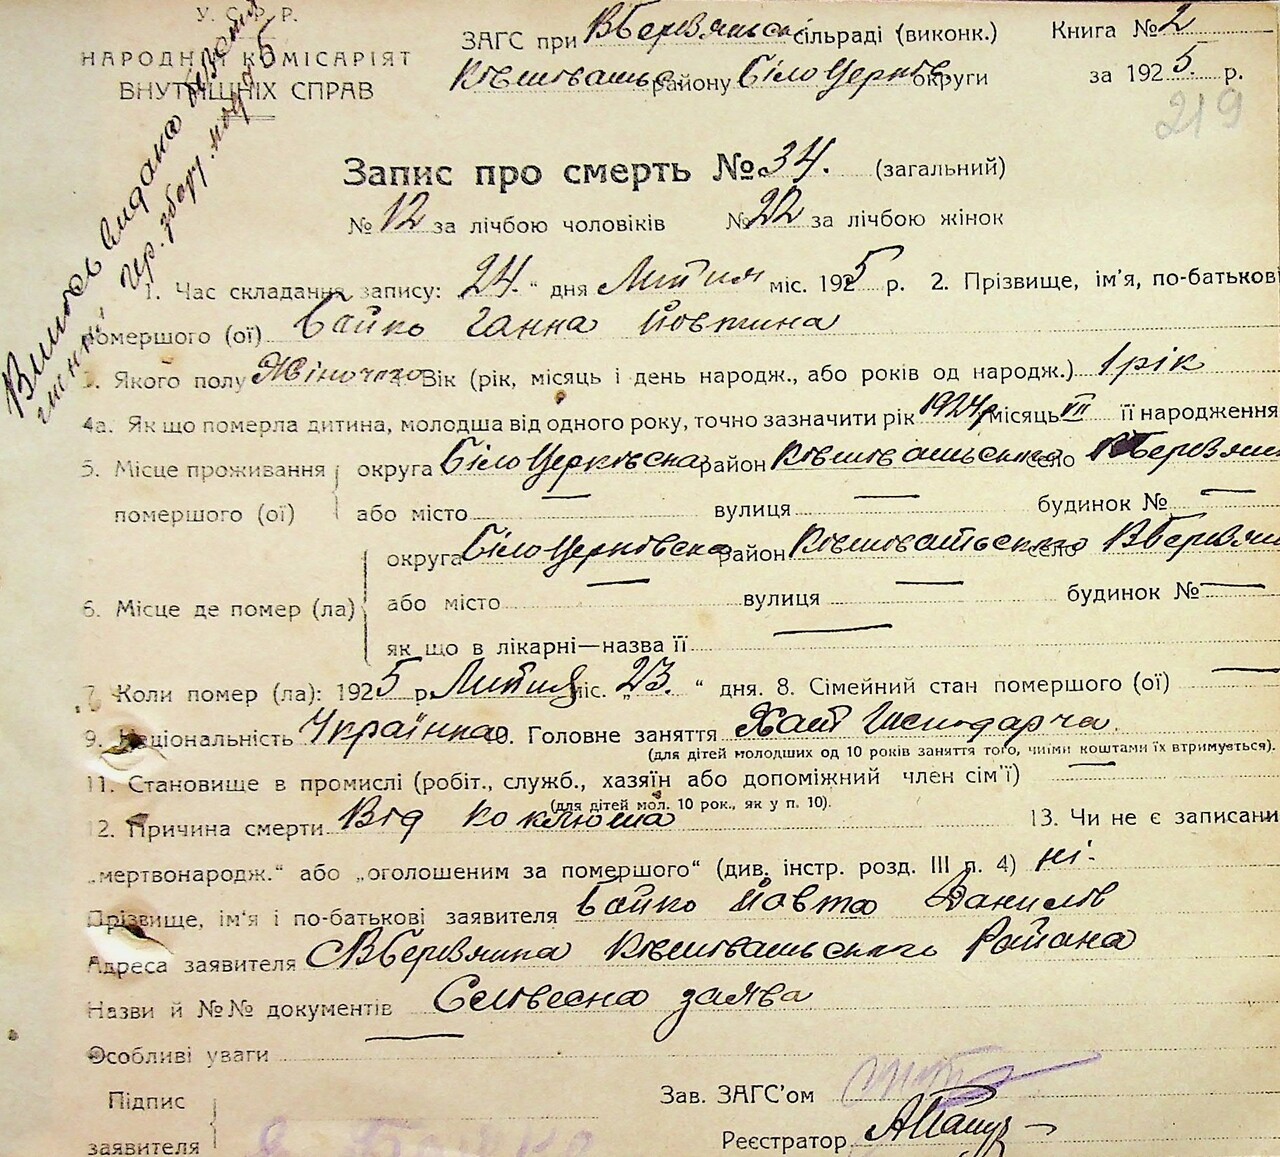 У. С. Р. Р.
НАРОДНІЙ КОМІСАРІЯТ
ВНУТРІШНІХ СПРАВ
ЗАГС при В Березянськ сільраді (виконк.) Книга № 2
району Білоцерків. округи за 1925 р.
219
Запис про смерть № 34. (загальний)
№ 12 за лічбою чоловіків № 22 за лічбою жінок
1. Час складання запису: 24. " дня Липня міс. 1925 р. 2. Прізвище, ім'я, по-батькові
помершого (ої) Бойко Ганна Йовтина
3. Якого полу Жіночого 4. Вік (рік, місяць і день народж., або років од народж.) 1 рік
4а. Як що померла дитина, молодша від одного року, точно зазначити рік 1924 р місяць VII її народження
5. Місце проживання округа Білоцерківська район село
помершого (ої) або місто — вулиця — будинок № —
округа Білоцерківська район село
6. Місце де помер (ла) або місто — вулиця — будинок № —
як що в лікарні—назва її —
7. Коли помер (ла): 1925 р. Липня міс. „23. " дня. 8. Сімейний стан помершого (ої) —
9. Національність Українка 10. Головне заняття Хат Господарча.
(для дітей молодших од 10 років заняття того, чиїми коштами їх втримується).
11. Становище в промислі (робіт., служб., хазяїн або допоміжний член сім'ї) —
(для дітей мол. 10 рок., як у п. 10).
12. Причина смерти Від коклюша 13. Чи не є записани
„мертвонародж." або „оголошеним за помершого" (див. інстр. розд. III п. 4) ні.
Прізвище, ім'я і по-батькові заявителя Бойко Йовта Данилов
Адреса заявителя Района
Назви й №№ документів Словесна заява
Особливі уваги —
Підпис
заявителя
Зав. ЗАГС'ом
Реєстратор